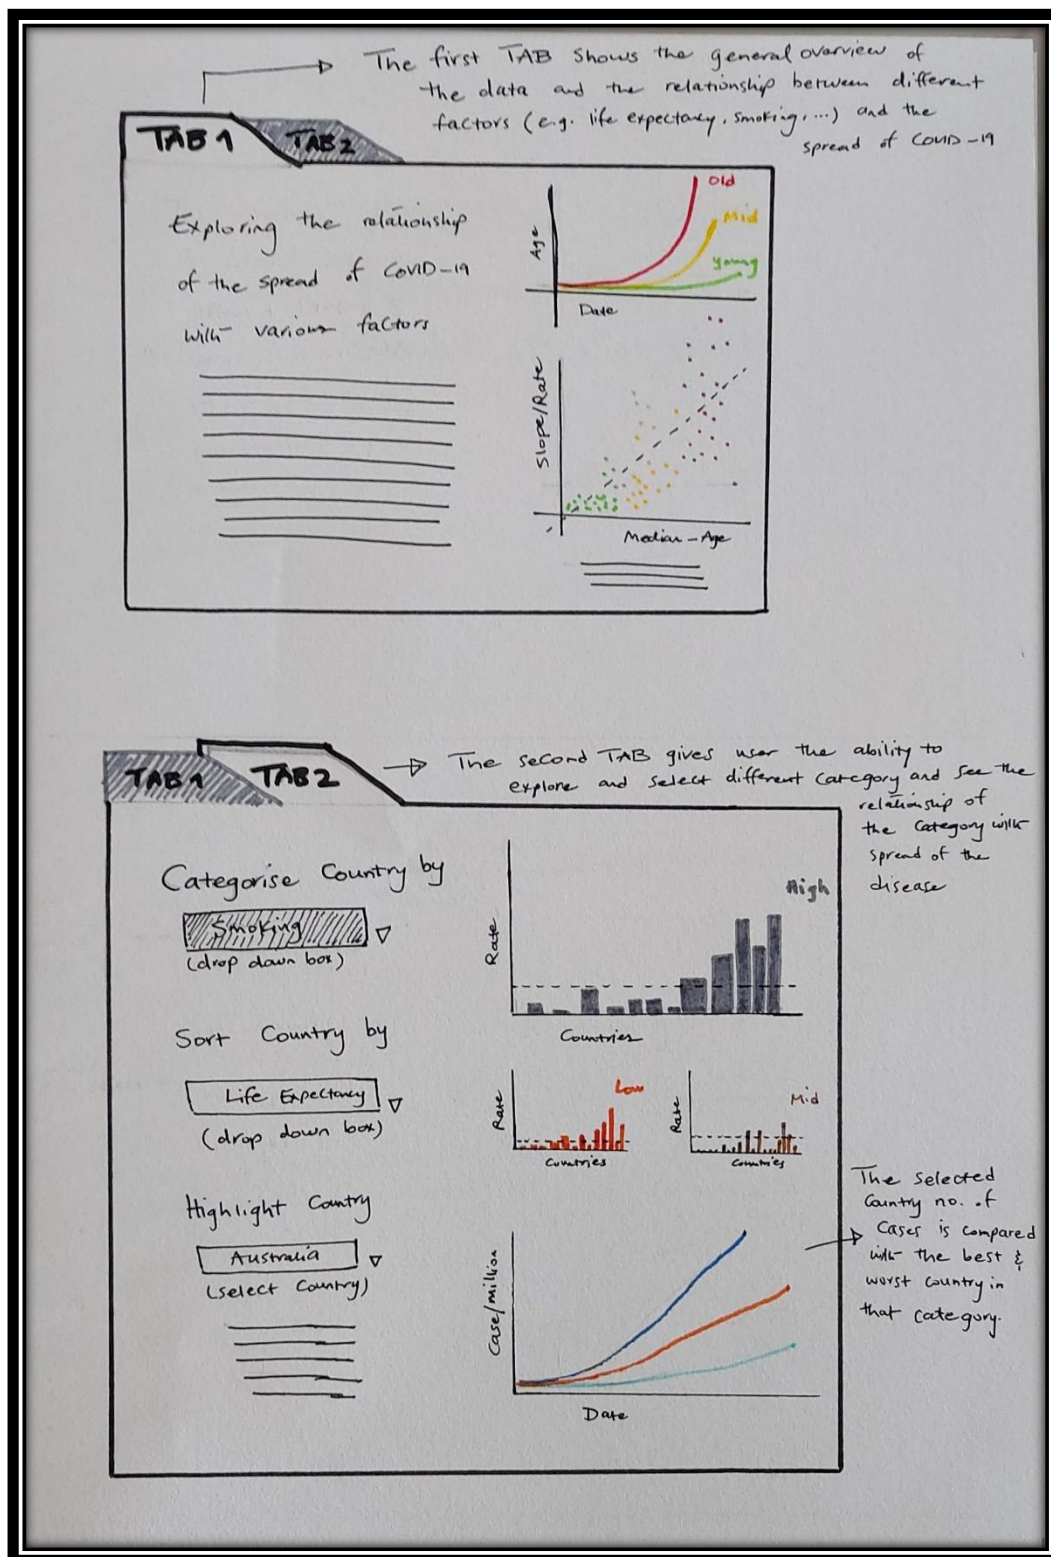 The first TAB shows the general overview of
the data and the relationship between different
factors (e.g. life expectancy, smoking, ...) and the
spread of COVID-19
TAB 1
TAB 2
Exploring the relationship
of the spread of COVID-19
with various factors
Age
Old
Mid
Young
Date
Slope/Rate
Median-Age
TAB 1
TAB 2
The second TAB gives user the ability to
explore and select different Category and see the
relationship of
the Category with
spread of the
disease
Categorise Country by
Smoking
(drop down box)
Rate
High
Countries
Sort Country by
Life Expectancy
(drop down box)
Rate
Low
Countries
Rate
Mid
Countries
Highlight Country
Australia
(select Country)
Case/million
Date
The selected
Country no. of
Cases is compared
with the best &
worst country in
that category.